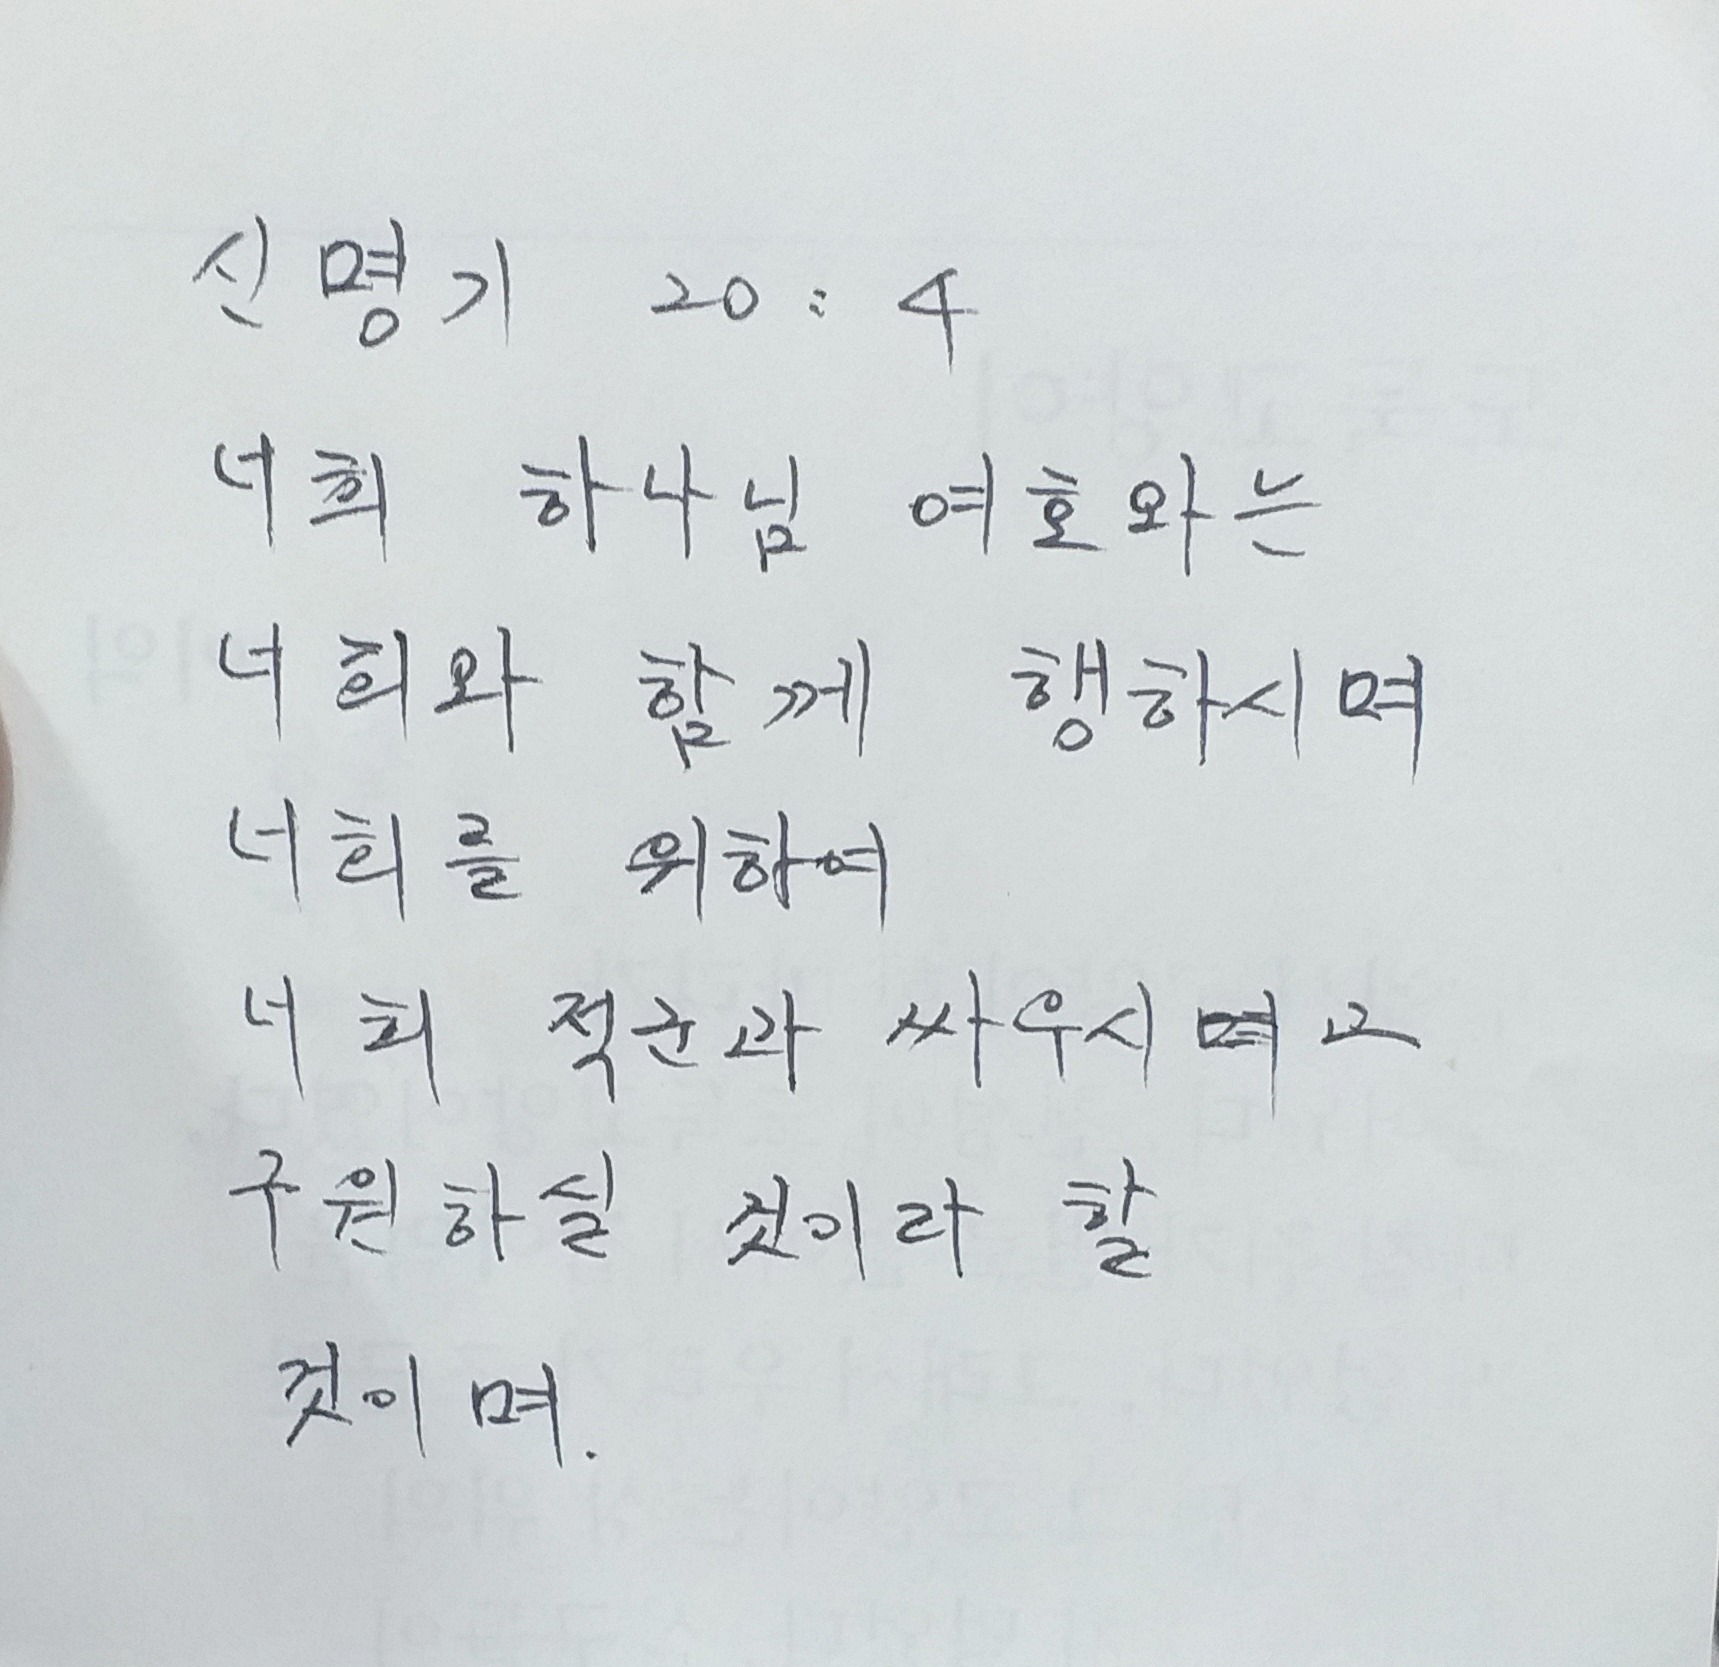 신명기 20:4
너희 하나님 여호와는
너희와 함께 행하시며
너희를 위하여
너희 적군과 싸우시고
구원하실 것이라 할
것이며.